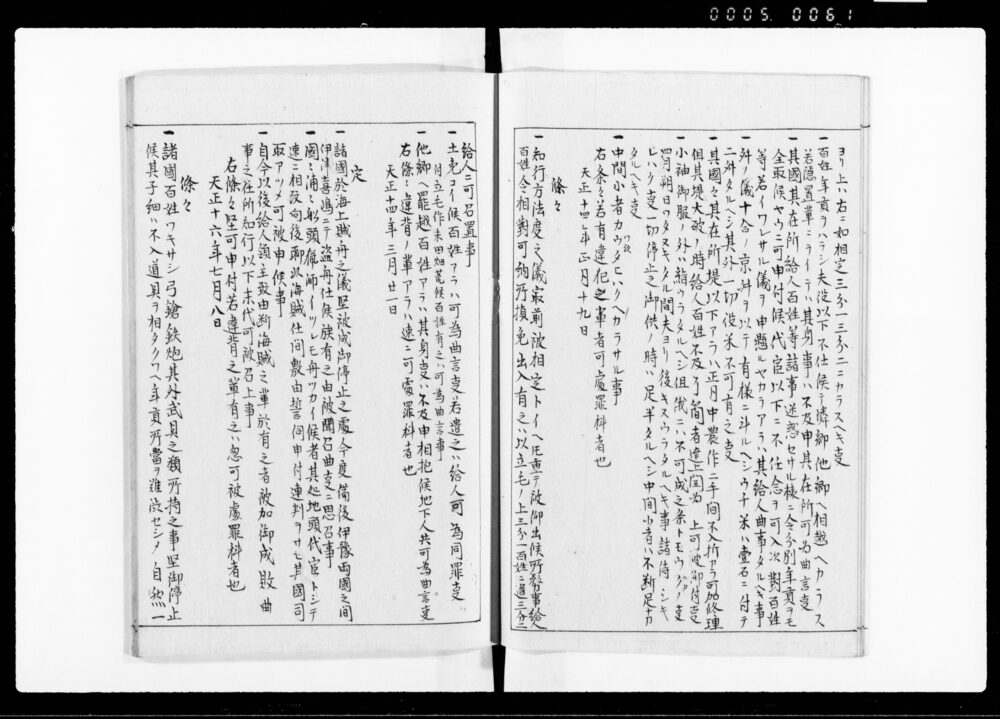 0005 0061
ヨリ上ハ右ニ和相定三分一三分二ニカラスヘキ支
一百姓年貢ヲハラシ夫役以下不仕候テ隣郷他郷ヘ相越ヘカラス
若隠置輩ニヲイテハ其身事ハ不及申其在所可為曲言支
一其國其在所給人百姓等諸事迷惑セサル様ニ令分別年貢ヲモ
全取候ヤウニ可申付候代官以下ニ不仕念ヲ可入次對百姓
等若イワレサル儀ヲ申懸ルヤカラアラハ其給人曲事タルヘキ事
一舛ノ儀十合ノ京舛ヲ以テ有様ニ斗ルヘシウチ米ハ壹石ニ付テ
二舛タルヘシ其外一切役米不可有之支
一其國々其在所堤以下アラハ正月中農作ニ手間不入折カラ可加修理
但其堤大破ノ時給人百姓不及了簡者達上聞為上可被仰付支
一小袖御服ノ外ハ絹ウラタルヘシ但俄ニハ不可成之条トモウラノ支
四月朔日ワタヌキタル間夫ヨリ後キスウラタルヘキ事諸侍シキ
レハク支一切停止之御供ノ時ハ足半タルヘシ中間小者ハ不断足ナカ
タルヘキ支
一中間小者カワタヒハクヘカラサル事
右条々若有違犯之輩者可處罪科者也
天正十四年正月十九日
條々
一知行方法度之儀最前被相定トイヘ圧重テ被仰出候所務事給人
百姓令相對可納所損免出入有之ハ以立毛ノ上三分一百姓ニ遣三分二
給人ニ可召置事
一土免コイ候百姓アラハ可為曲言支若遣之ハ給人可為同罪支
付立毛作未田畑荒候百姓有之ハ可為曲言事
一他郷ヘ罷越百姓アラハ其身支ハ不及申相抱候地下人共可為曲言支
右條々違背ノ輩アラハ速ニ可處罪科者也
天正十四年三月廿一日
定
一諸國於海上賊舟之儀堅被成御停止之處今度備後伊豫両國之間
伊津喜嶋ニテ盗舟仕候族有之由被聞召曲支ニ思召事
一國々浦々船頭猟師イツレモ舟ツカイ候者其処地頭代官トシテ
速ニ相改向後聊以海賊仕間敷由誓詞申付連判ヲサセ其國司
取アツメ可被申候事
一自今以後給人領主致由断海賊之輩於有之者被加御成敗曲
事之在所知行以下末代可被召上事
右條々堅可申付若違背之輩有之ハ忽可被處罪科者也
天正十六年七月八日
條々
一諸國百姓ワキサシ弓鎗鉄炮其外武具之類所持之事堅御停止
候其子細ハ不入道具ヲ相タクハヘ年貢所當ヲ難渋セシメ自然一